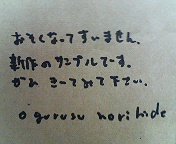 おそくなってすいません.
新作のサンプルでーす.
ぜひ きーてみて下さい.
ogurusu norihide